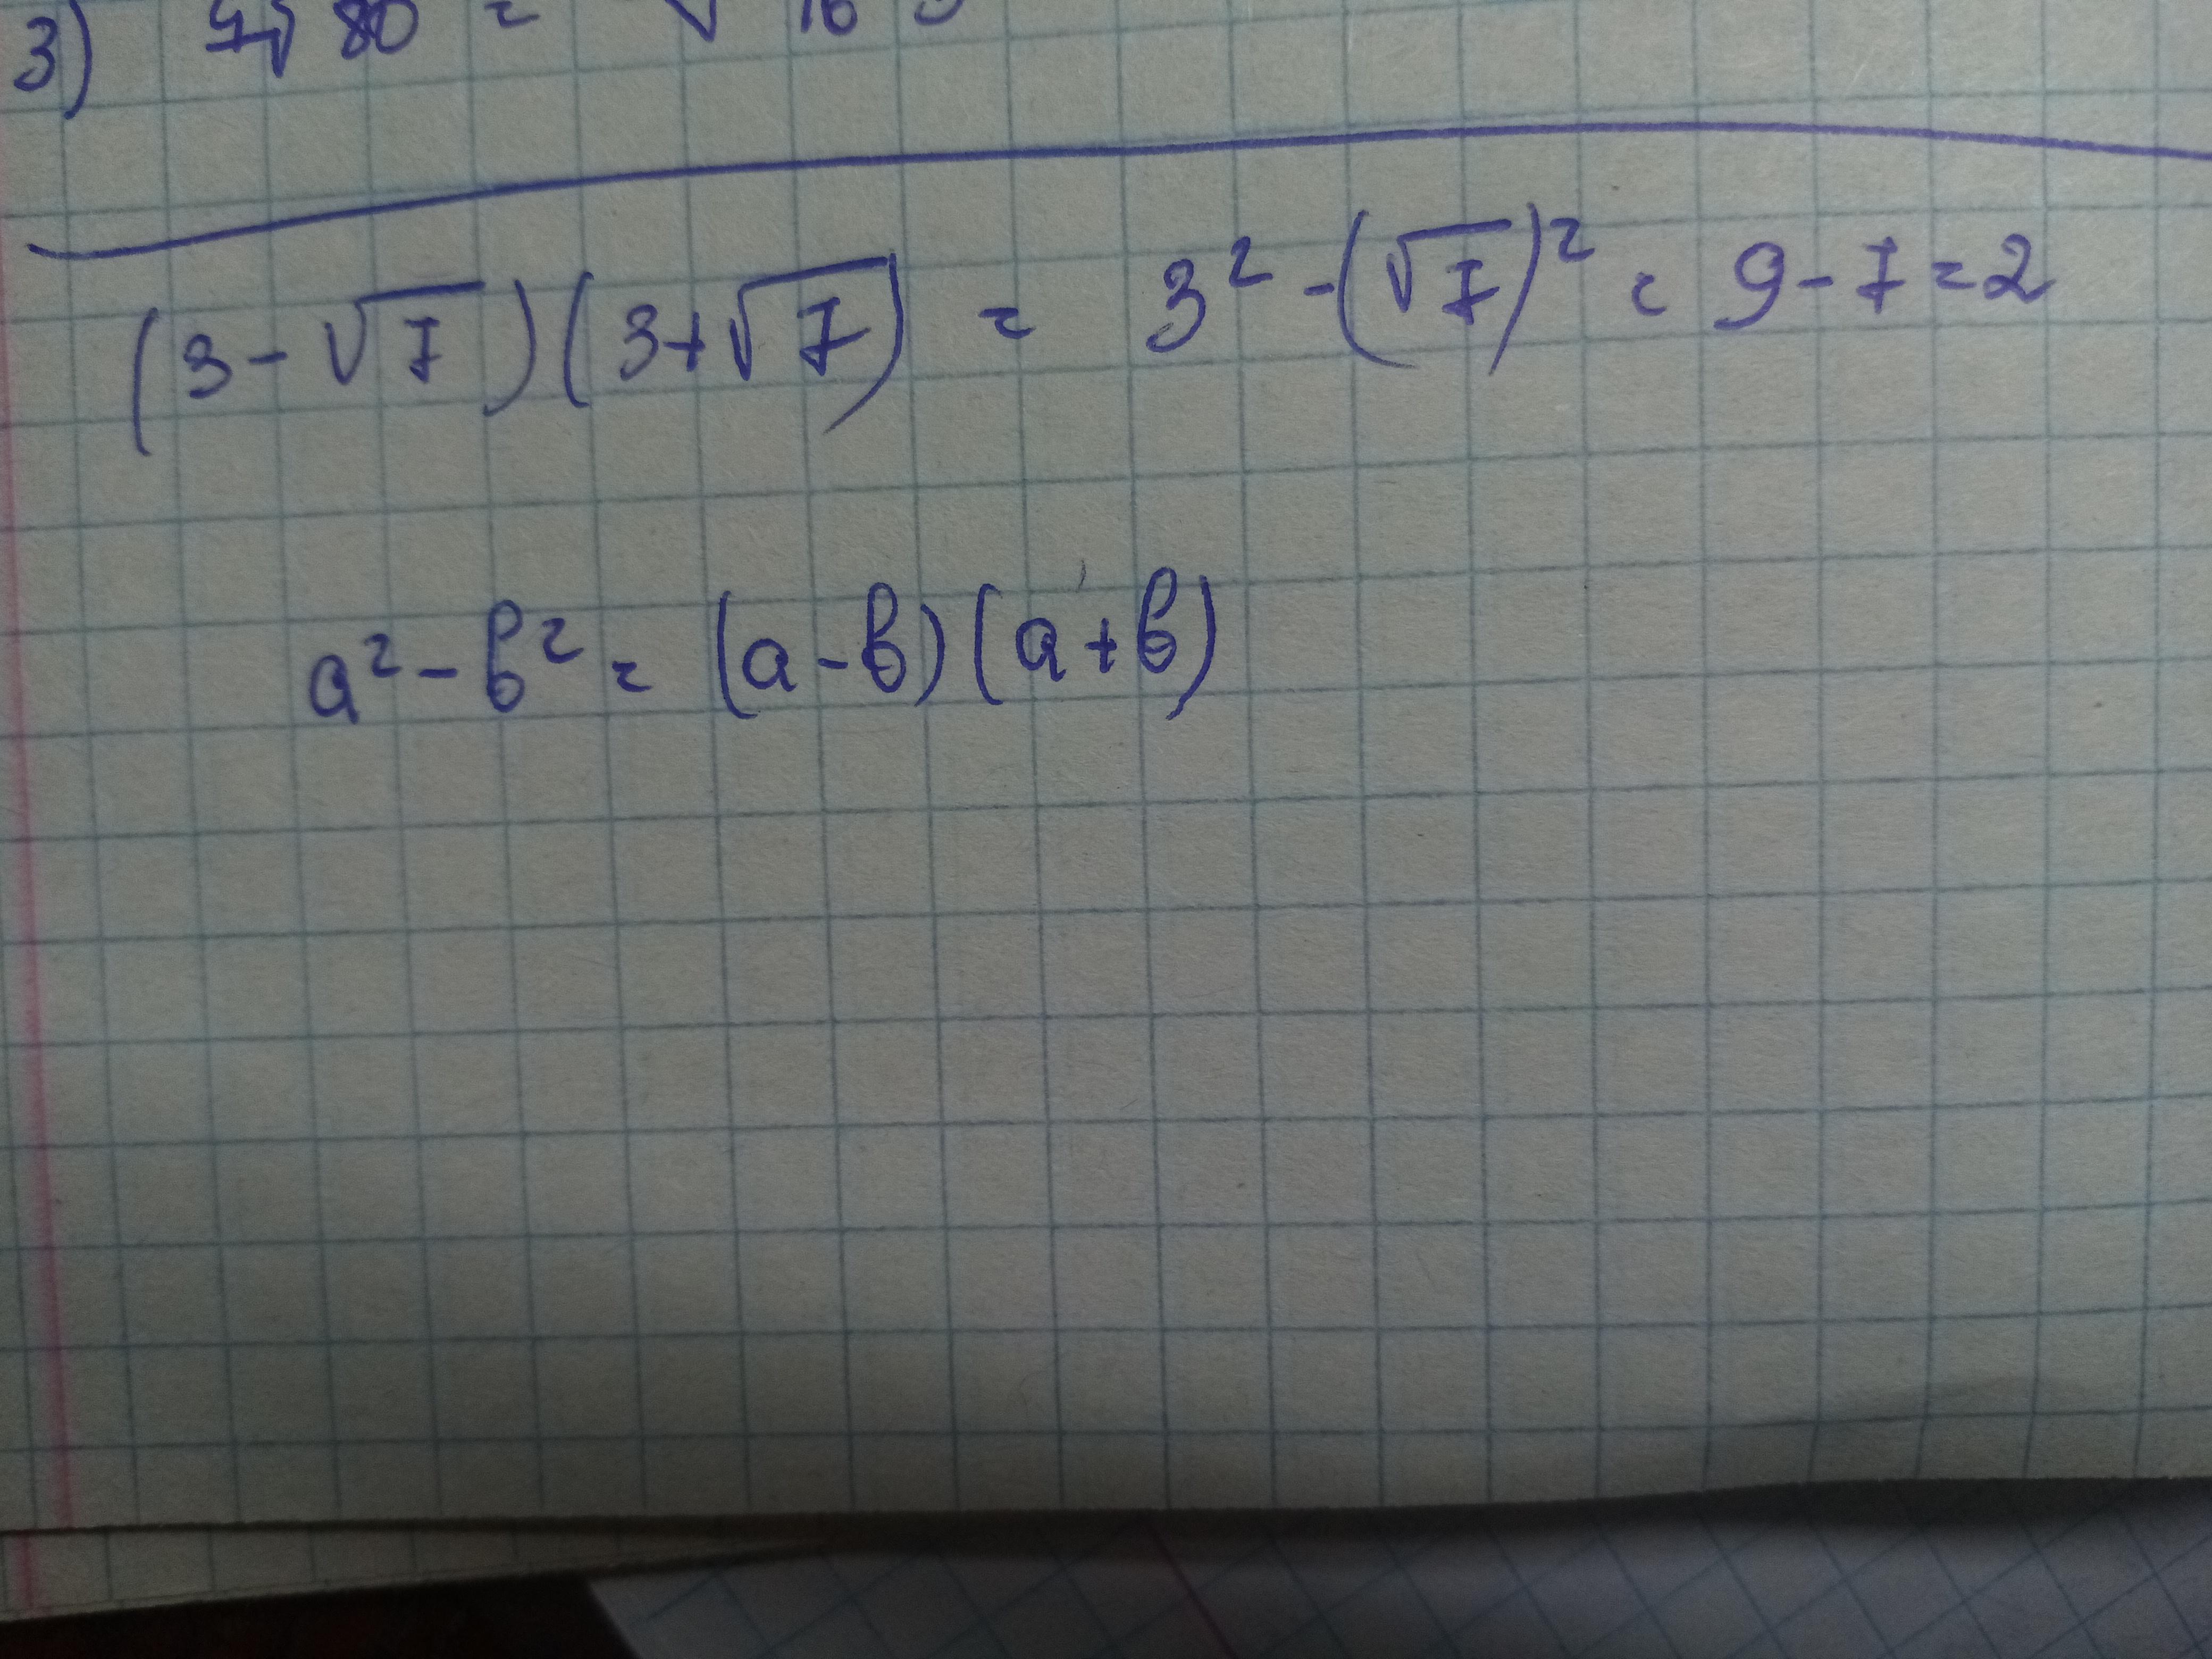 3) 7√80 = √16
(3-√7)(3+√7) = 3² - (√7)² = 9-7=2
a² - b² = (a-b)(a+b)